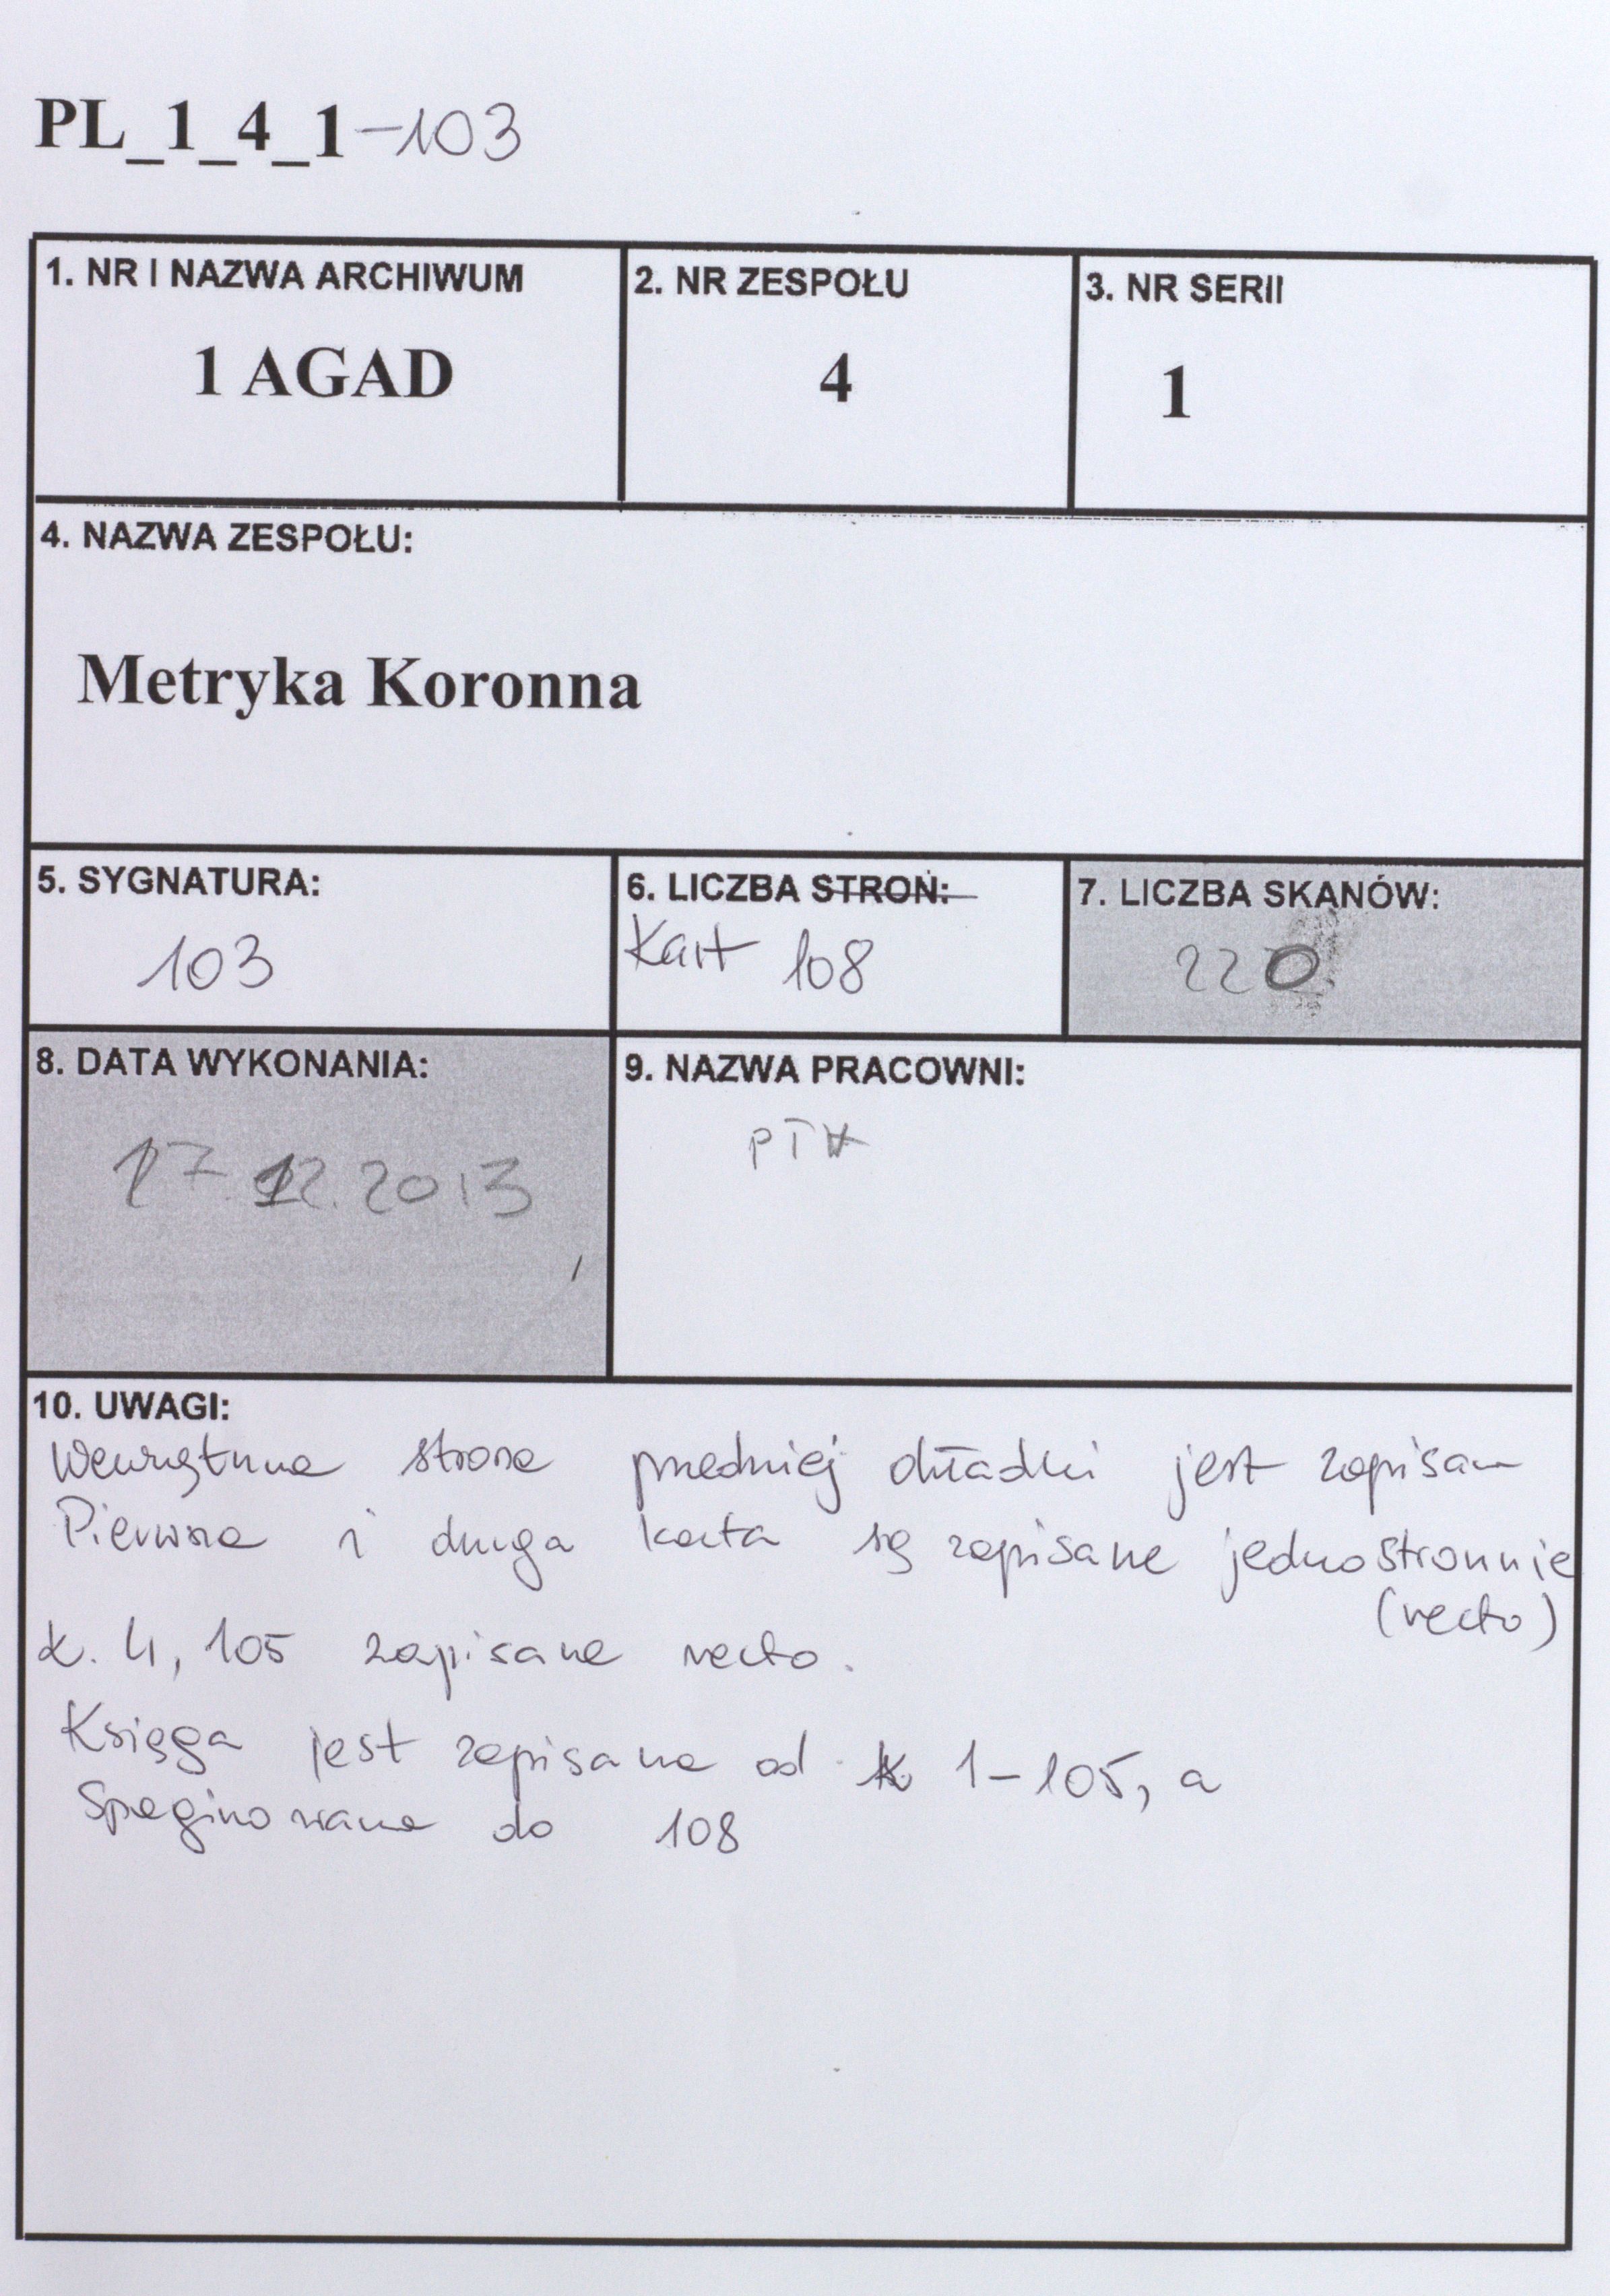 PL_1_4_1-103
1. NR I NAZWA ARCHIWUM
1 AGAD
2. NR ZESPOŁU
4
3. NR SERII
1
4. NAZWA ZESPOŁU:
Metryka Koronna
5. SYGNATURA:
103
6. LICZBA STRON:
Kart 108
7. LICZBA SKANÓW:
220
8. DATA WYKONANIA:
17.12.2013
9. NAZWA PRACOWNI:
10. UWAGI:
Wewnętrzna strona przedniej okładki jest zapisana
Pierwsza i druga karta są zapisane jednostronnie
(recto)
k. 4, 105 zapisane recto.
Księga jest zapisana od k 1-105, a
spaginowana do 108